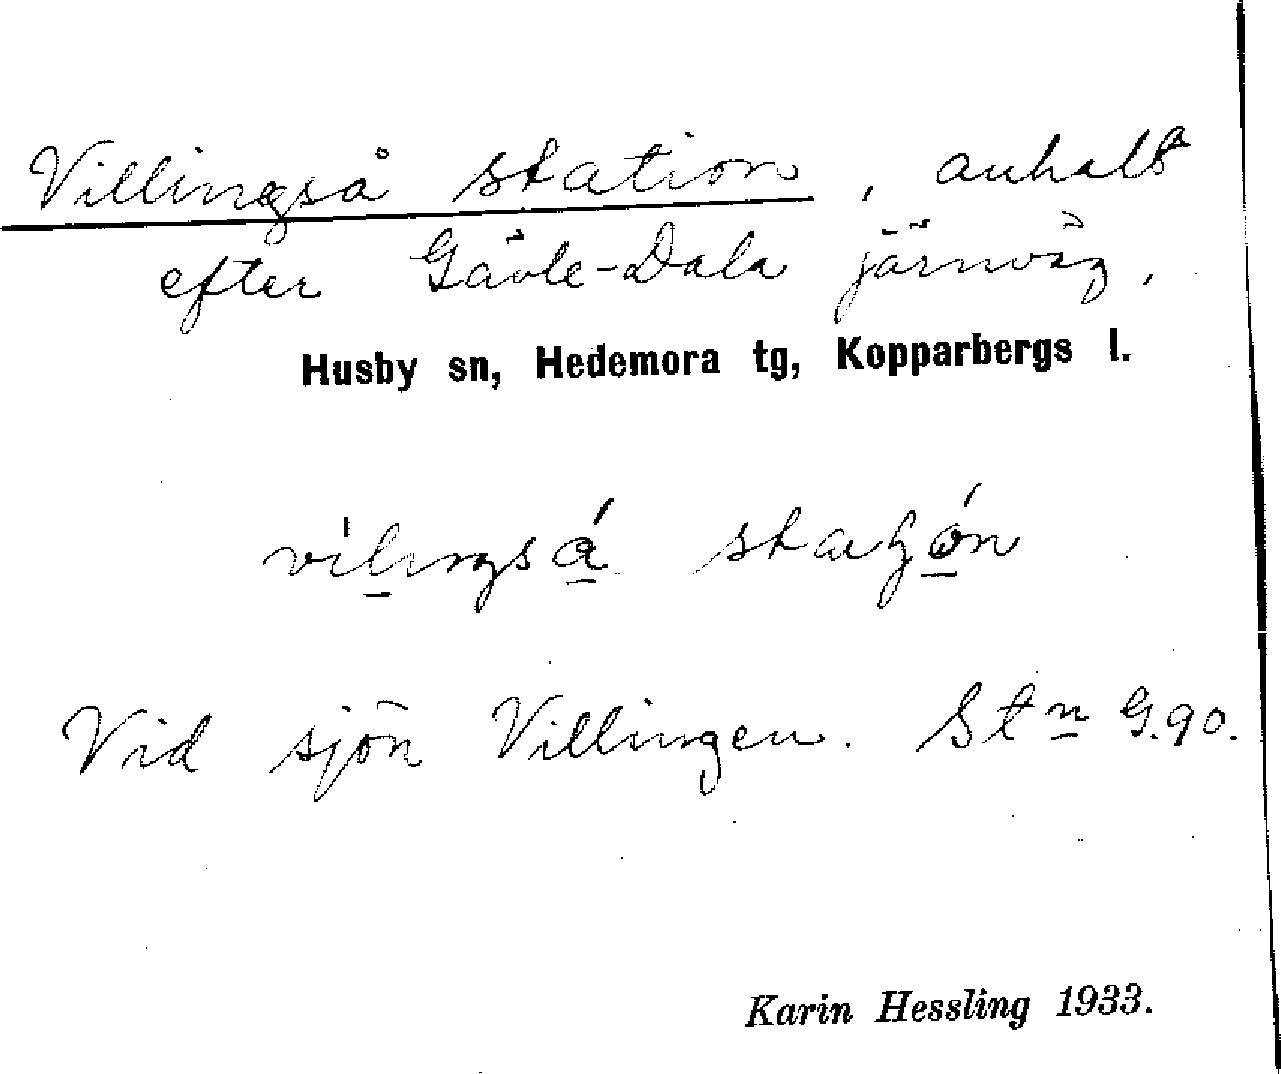 Villingså station, anhalt
efter Gävle-Dala järnväg.
Husby sn, Hedemora tg, Kopparbergs l.
Vid sjön Villingen. Stn G.90.
Karin Hessling 1933.